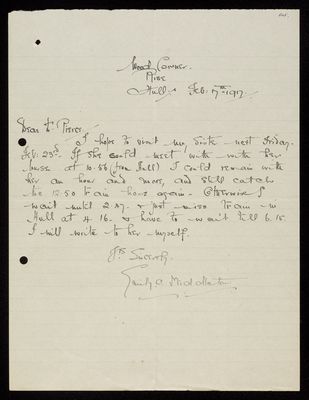 West Corner.
Hull, Feb: 17th 1917.
Dear Dr Pierce.
I hope to visit my Sister next Friday.
Feb: 23rd. If she could meet with with her
nurse at 10.56 (from Hull) I could remain with
her an hour and more, and still catch
the 12.50 train home again. Otherwise I
wait until 2. & just miss train in
Hull at 4.16. & have to wait till 6.15
I will write to her myself.
Yrs Sincerely.
Emily A. Middleton.